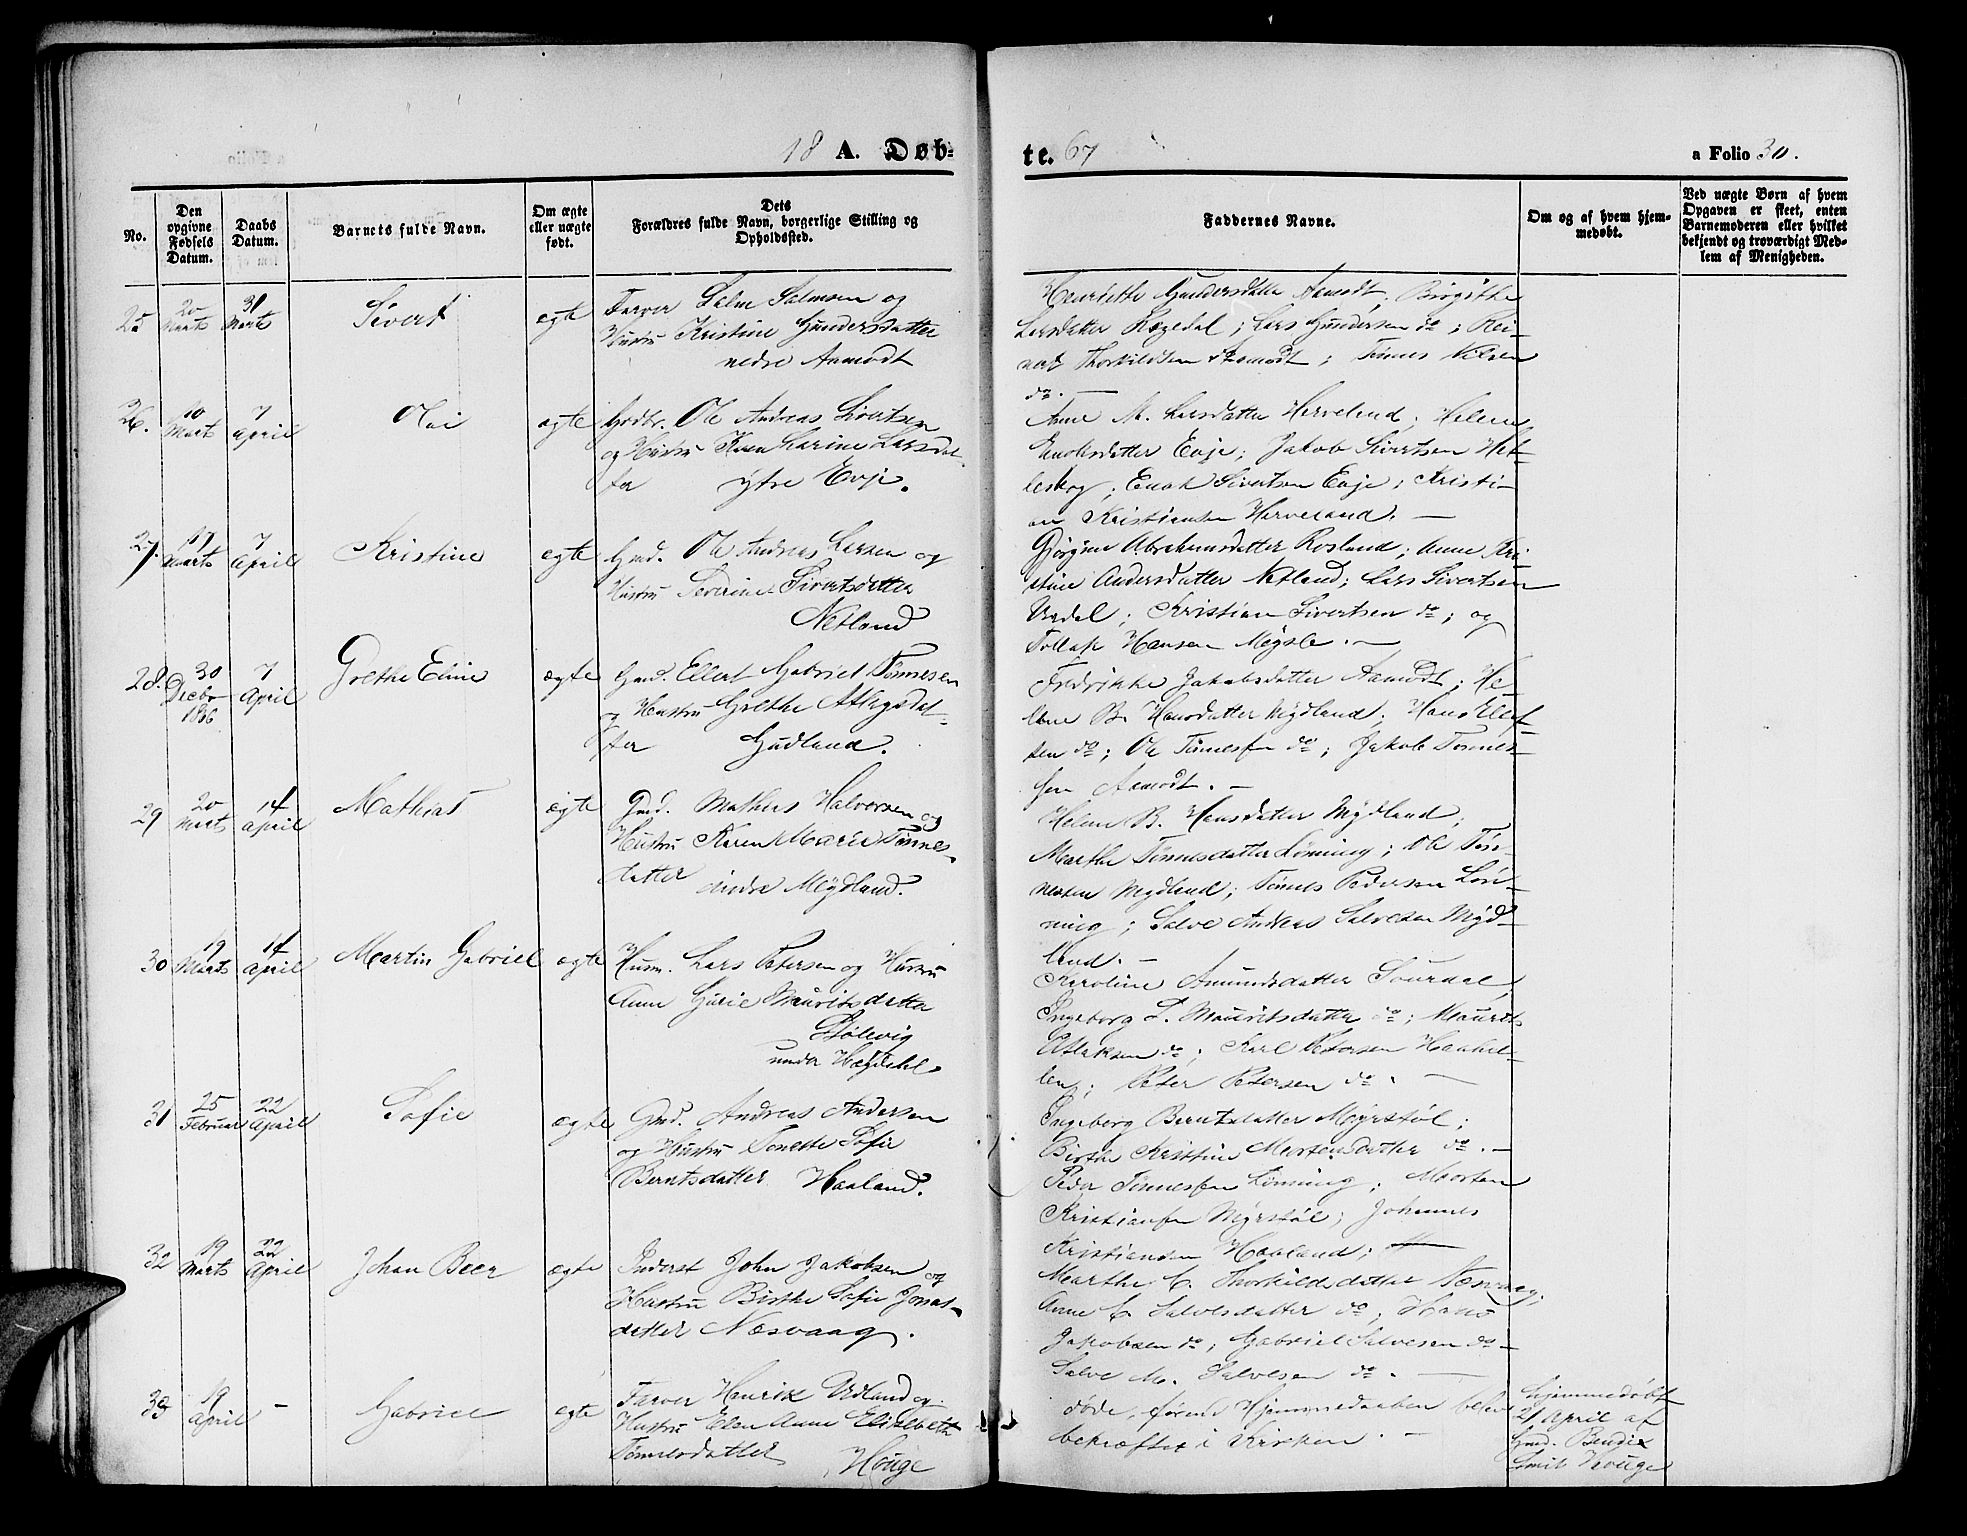 18 A. Døb-
te. 67
a Folio 30.
No.
Den opgivne Fødsels Datum.
Daabs Datum.
Barnets fulde Navn.
Om ægte eller uægte født.
Dets Forældres fulde Navn, borgerlige Stilling og Opholdssted.
Faddernes Navne.
Om og af hvem hjemmedøbt.
Ved uægte Børn af hvem Opgaven er skeet, enten Barnemoderen eller hvilket bekjendt og troværdigt Medlem af Menigheden.
25 20 Marts 31 Marts Sivert ægte
Farver Salm Salmsen og
Hustru Kristine Gundersdatter
nedre Aamodt
Henriette Gundersdatter Aamodt; Birgithe
Larsdatter Rægedal; Lars Gundersen do; Rei-
nert Thorkildsen Aamodt; Tønnes Nilsen
do. —
26. 10 Marts 7 April Olai ægte
Grdbr. Ole Andreas Sivertsen
og Hustru Karen Larine Larsdat-
ter ytre Evje.
Anne M. Larsdatter Herveland; Helene
Enoksdatter Evje; Jakob Sivertsen Het-
leskog; Enok Sivertsen Evje; Kristi-
an Kristiansen Herveland. —
27. 17 Marts 7 April Kristine ægte
Gmd. Ole Andreas Larsen og
Hustru Severine Sivertsdatter
Netland
Gjørgine Abrahamsdatter Rosland; Anne Kri-
stine Andersdatter Netland; Lars Sivertsen
Urdal; Kristian Sivertsen do; og
Tollak Hansen Meysle. —
28. 30 Decbr 1866 7 April Grethe Eline ægte
Gmd. Ellert Gabriel Tønnesen
og Hustru Grethe Atlagsdat-
ter Gudland.
Fredrikke Jakobsdatter Aamodt; He-
lene B. Hansdatter Mydland; Hans Ellef-
sen do; Ole Tønnessen do; Jakob Tønnes-
sen Aamodt. —
29 20 Marts 14 April Mathias ægte
Gmd. Mathias Halvorsen og
Hustru Karen Marie Tønnes-
datter indre Meydland.
Helene B. Hansdatter Mydland;
Marthe Tønnesdatter Lønning; Ole Tøn-
nesen Mydland; Tønnes Pedersen Løn-
ning; Salve Andreas Salvesen Myd-
land. —
30 19 Marts 14 April Martin Gabriel ægte
Husm. Lars Petersen og Hustru
Anne Gurie Mauritsdatter
Stølevig
under Hægdahl.
Karoline Amundsdatter Sourdal,
Ingeborg L. Mauritsdatter do; Maurits
Atlaksen do; Karl Petersen Haahel-
len; Peter Petersen do. —
31 25 Februar 22 April Sofie ægte
Gmd. Andreas Andersen
og Hustru Tonette Sofie
Berntsdatter Haaland.
Ingeborg Berntsdatter Myrstøl;
Birthe Kristine Mortensdatter do. —
Peder Tønnessen Lønning; Morten
Kristiansen Myrstøl; Johannes
Kristiansen Haaland;
32 19 Marts 22 April Johan Beer ægte
Inderst John Jakobsen og
Hustru Birthe Sofie Jonas-
datter Næsvaag.
Marthe C. Thorkildsdatter Næsvaag;
Anne C. Salvesdatter do; Hans
Jakobsen do; Gabriel Salvesen do —
Salve M. Salvesen do. —
33 19 April — Gabriel ægte
Farver Henrik Udland og
Hustru Elen Anne Elisabeth
Tønnesdatter Houge
døde, førend Hjemmedaaben blev
bekræftet i Kirken. —
Hjemmedøbt
21 April af
Gmd. Bendix
Smit Houge